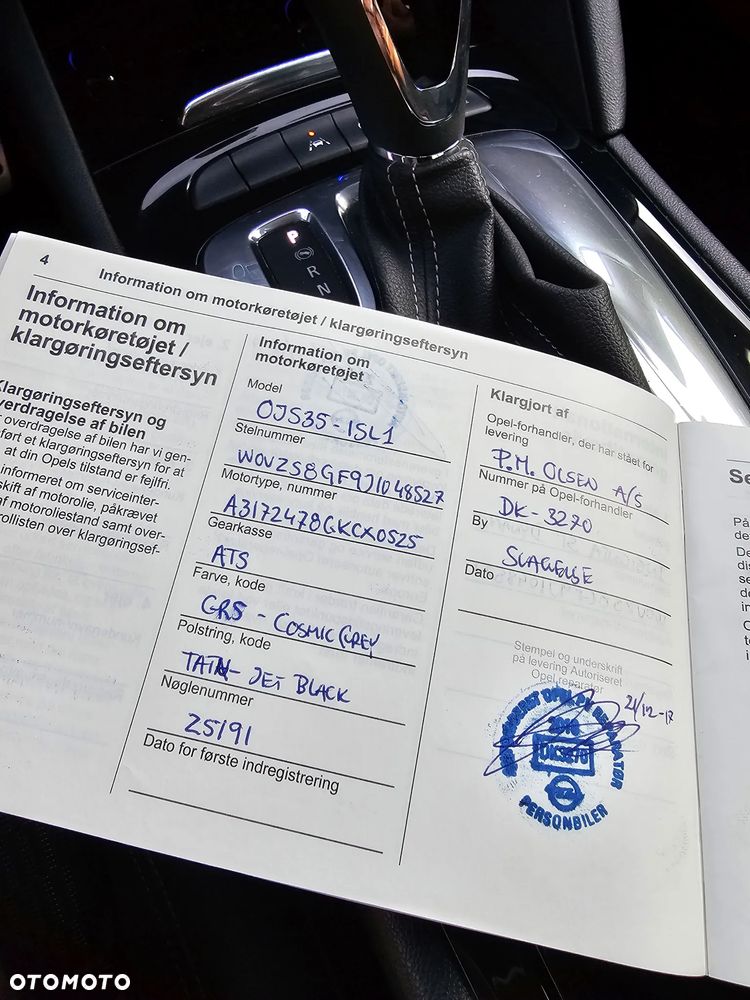 P
R
N
4
Information om motorkøretøjet / klargøringseftersyn
Information om
motorkøretøjet /
klargøringseftersyn
Klargøringseftersyn og
verdragelse af bilen
overdragelse af bilen har vi gen-
ført et klargøringseftersyn for at
at din Opels tilstand er fejlfri.
informeret om serviceinter-
skift af motorolie, påkrævet
af motoroliestand samt over-
rollisten over klargøringsef-
Information om
motorkøretøjet
Model
OJS35-ISL1
Stelnummer
W0VZS8GF9J1048527
Motortype, nummer
A3172478GKCX0525
Gearkasse
ATS
Farve, kode
GR5 - COSMIC GREY
Polstring, kode
TATN- JET BLACK
Nøglenummer
25191
Dato for første indregistrering
Klargjort af
Opel-forhandler, der har stået for
levering
P.M. OLSEN A/S
Nummer på Opel-forhandler
DK-3270
By
SLAGELSE
Dato
Stempel og underskrift
på levering Autoriseret
Opel reparatør
21/12-17
DK3270
PERSONBILER
Se
På
det
Di
dis
se
de
in
OTOMOTO